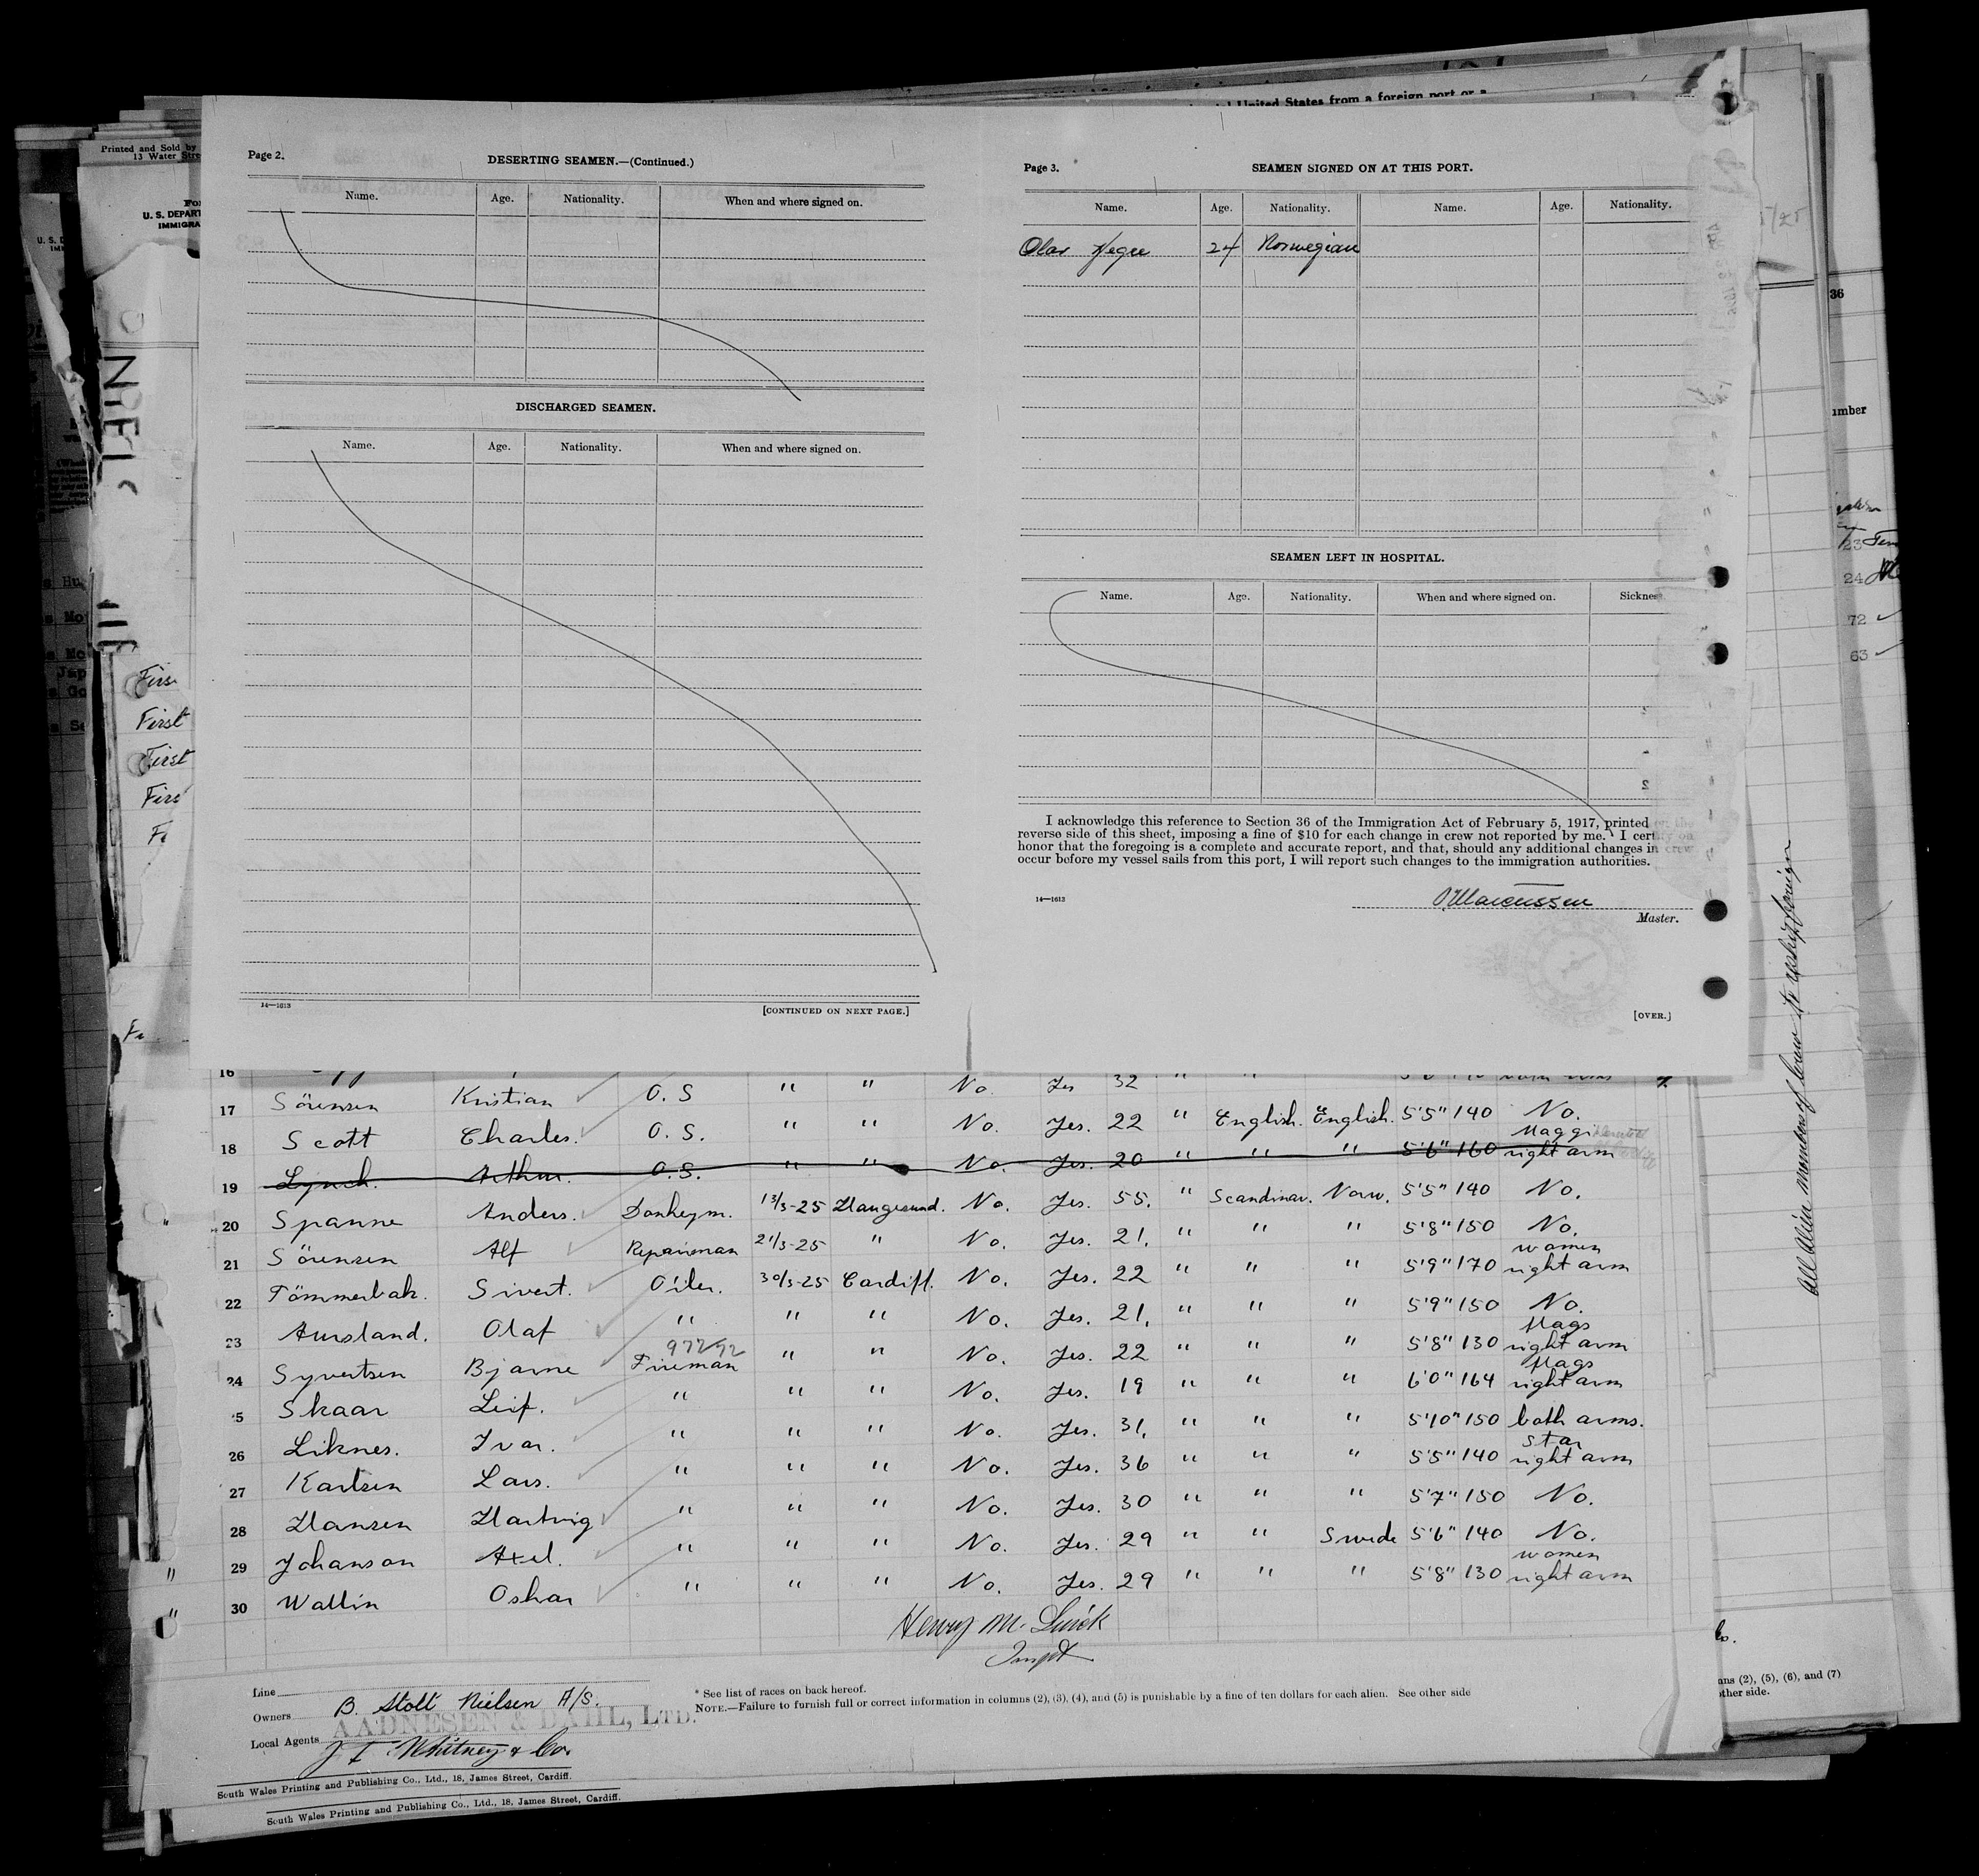 Printed and Sold by
13 Water Stre
U. S. DEPART
IMMIGRA
United States from a foreign port or a
Page 2.
DESERTING SEAMEN.—(Continued.)
Name. Age. Nationality. When and where signed on.
DISCHARGED SEAMEN.
Name. Age. Nationality. When and where signed on.
14—1613
[CONTINUED ON NEXT PAGE.]
Page 3.
SEAMEN SIGNED ON AT THIS PORT.
Name. Age. Nationality. Name. Age. Nationality.
24 Norwegian
SEAMEN LEFT IN HOSPITAL.
Name. Age. Nationality. When and where signed on. Sickness
I acknowledge this reference to Section 36 of the Immigration Act of February 5, 1917, printed on the
reverse side of this sheet, imposing a fine of $10 for each change in crew not reported by me. I certify on
honor that the foregoing is a complete and accurate report, and that, should any additional changes in crew
occur before my vessel sails from this port, I will report such changes to the immigration authorities.
14—1613
Master.
[OVER.]
First
First
First
36
umber
23
24
72
63
All Alien members of crew to reship foreign
16
17 Sörensen Kristian O. S " " No. Yes 32 " "
18 Scott Charles. O. S. " " No. Yes. 22 " English. English. 5'5" 140 No.
19 Lynch. Arthur. O. S. " " No. Yes. 20 " " " 5'6" 160 right arm
20 Spanne Anders. Donkeym. 13/3-25 Haugesund. No. Yes. 55. " Scandinav. Norw. 5'5" 140 No.
21 Sörensen Alf Repairman 21/3-25 " No. Yes. 21. " " " 5'8" 150 No.
22 Tömmerbak. Sivert. Oiler. 30/3-25 Cardiff. No. Yes. 22 " " " 5'9" 170 women right arm
23 Aursland. Olaf " " " No. Yes. 21. " " " 5'9" 150 No.
97292
24 Syvertsen Bjarne Fireman " " No. Yes. 22 " " " 5'8" 130 flags right arm
5 Skaar Leif. " " " No. Yes. 19 " " " 6'0" 164 flags right arm
26 Liknes. Ivar. " " " No. Yes. 31. " " " 5'10" 150 both arms.
27 Karlsen Lars. " " " No. Yes. 36 " " " 5'5" 140 star right arm
28 Hansen Hartvig " " " No. Yes. 30 " " " 5'7" 150 No.
29 Johanson Axel. " " " No. Yes. 29 " " Swede 5'6" 140 No.
30 Wallin Oskar " " " No. Yes. 29 " " " 5'8" 130 women right arm
Line
Owners B. Stolt Nielsen A/S.
AADNESEN & DAHL, LTD.
Local Agents J F Whitney & Co.
* See list of races on back hereof.
NOTE.—Failure to furnish full or correct information in columns (2), (3), (4), and (5) is punishable by a fine of ten dollars for each alien. See other side
ns (2), (5), (6), and (7)
other side.
South Wales Printing and Publishing Co., Ltd., 18, James Street, Cardiff.
South Wales Printing and Publishing Co., Ltd., 18, James Street, Cardiff.